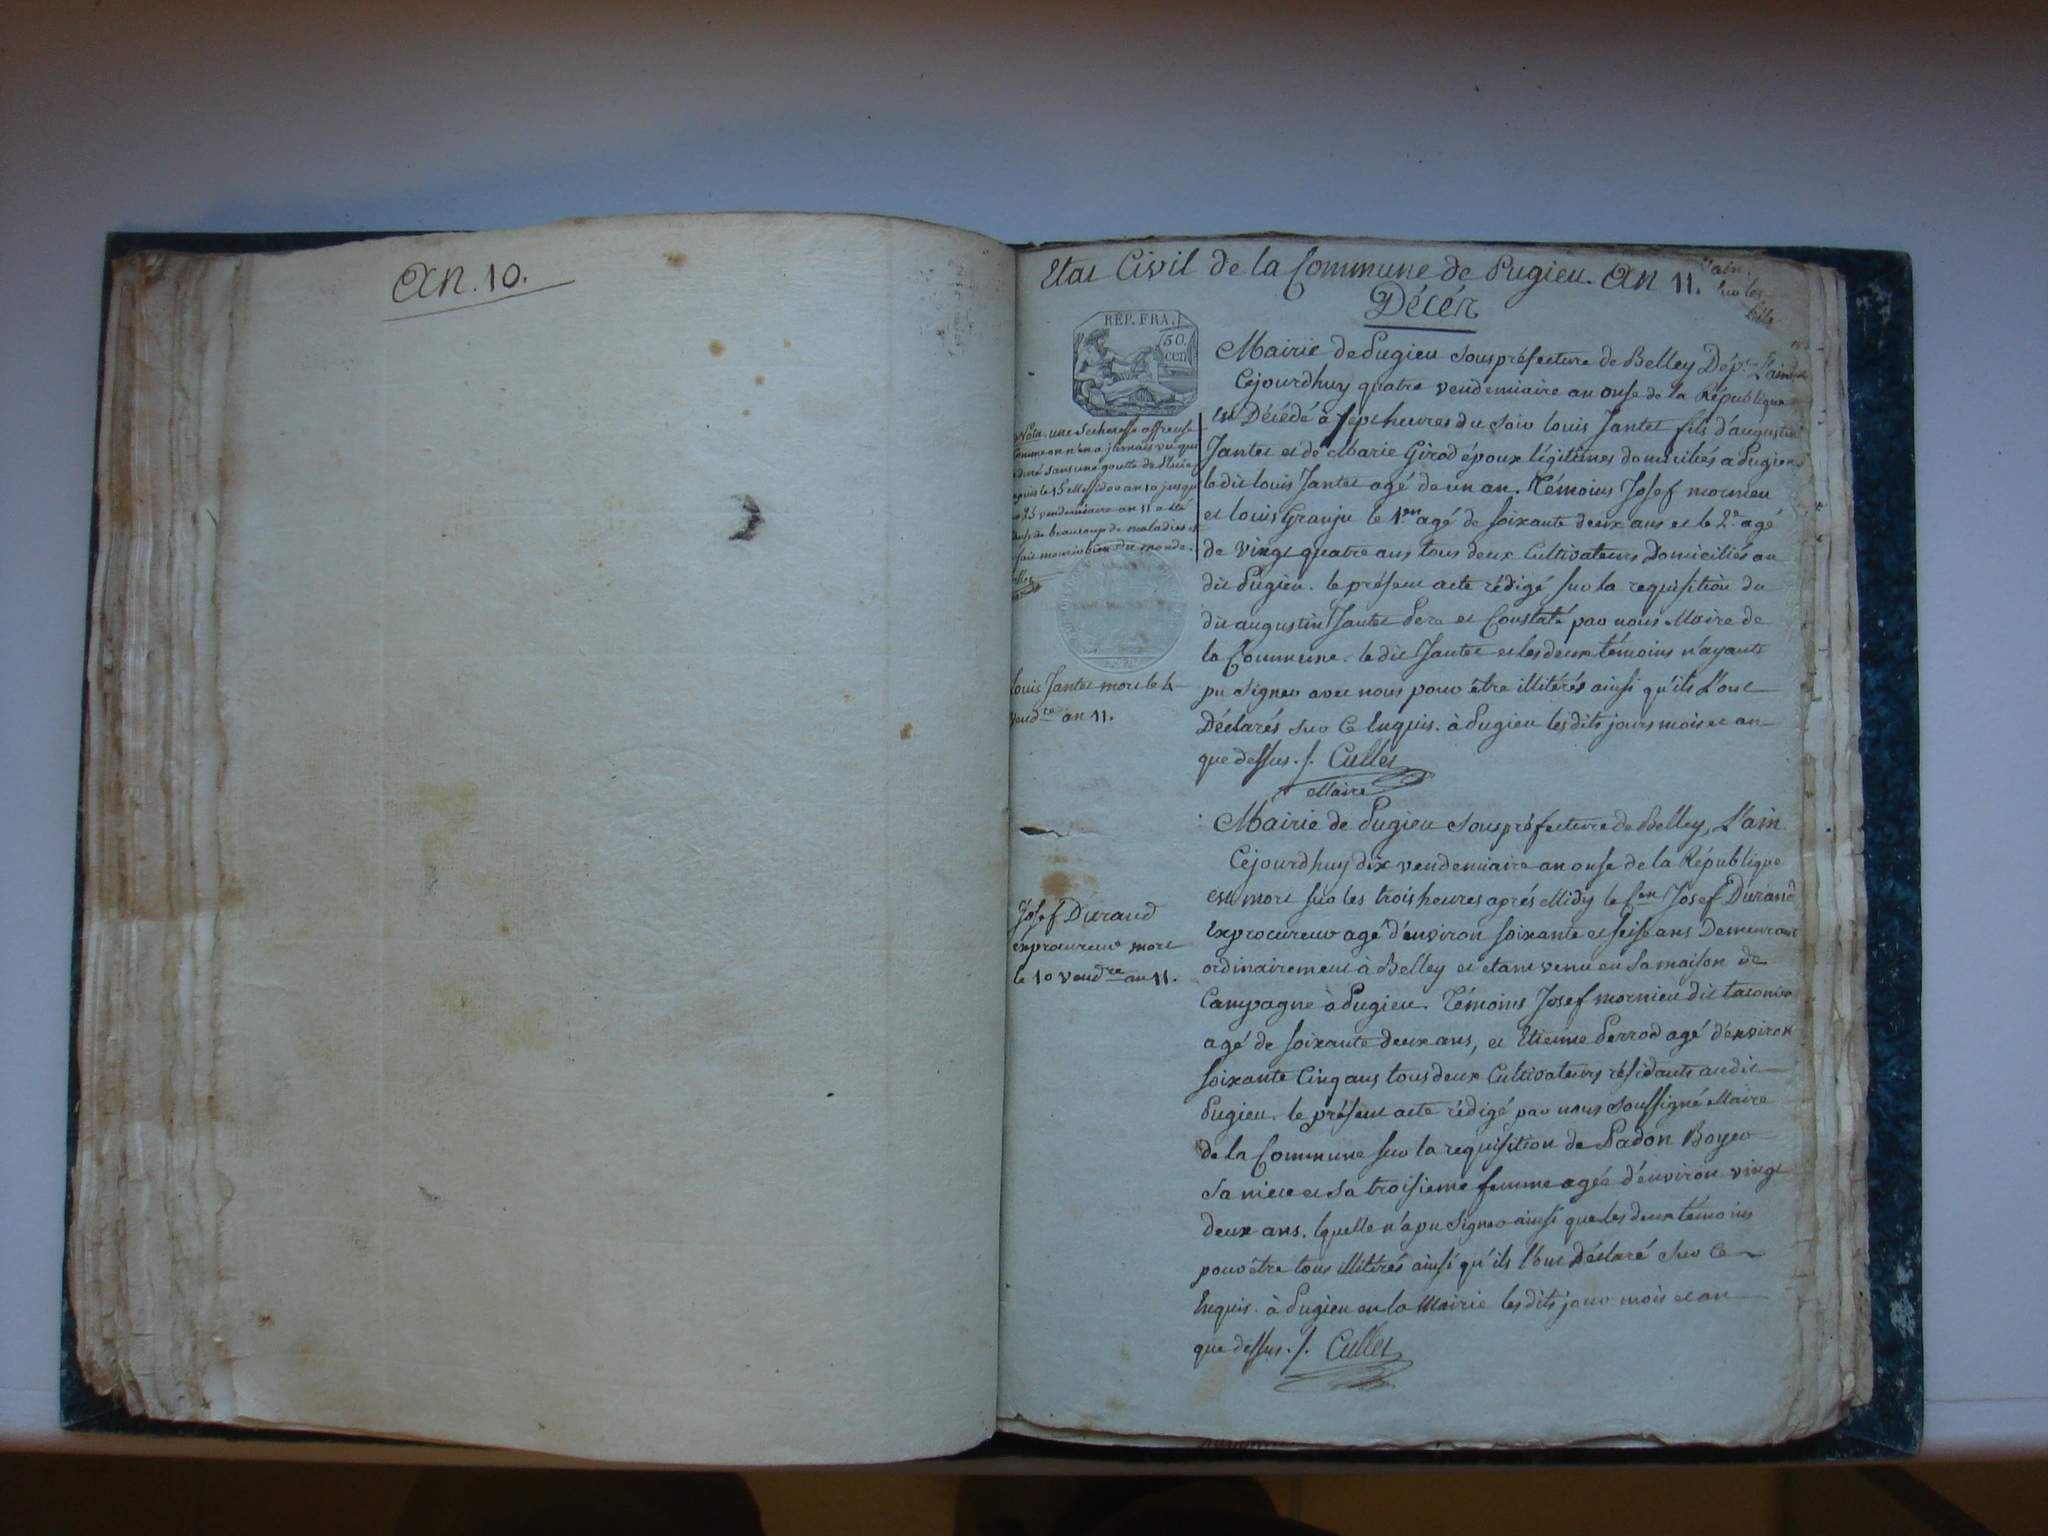 An. 10.
Etat Civil de la Commune de Pugieu. An 11.
Décés
RÉP. FRA.
50
cen
Mairie de Pugieu souspréfecture de Belley Dépt. L'ain
Cejourdhuy quatre vendemiaire an onse de la République
est Décédé à sept heures du soir louis Jantet fils d'augustin
Jantet et de Marie Girod époux légitimes domiciliés a Pugieu
le dit louis Jantet agé de un an. Témoins Josef mornieu
et louis Granju le 1er agé de soixante deux ans et le 2e agé
de vingt quatre ans tous deux Cultivateurs Domiciliés au
dit Pugieu. le présent acte rédigé sur la requisition du
dit augustin Jantet Pere et Constaté par nous Maire de
la Commune. le dit Jantet et les deux témoins n'ayant
pu signer avec nous pour être illitérés ainsi qu'ils l'ont
Déclarés sur ce Enquis. à Pugieu les dits jours mois et an
que dessus. /. Cullet
Maire
Nota. une secheresse affreuse
comme on n'en a jamais vu qui
a duré sans une goutte de Pluie
depuis le 15 Messidor an 10 jusqu'
au 25 vendemiaire an 11 a été
cause de beaucoup de maladies et
fait mourir bien du monde.
louis Jantet mort le 4
Vendre an 11.
Mairie de Pugieu souspréfecture de Belley, L'ain
Cejourdhuy dix vendemiaire an onse de la République
est mort sur les trois heures aprés Midy le Cen Josef Durand
Exprocureur agé d'environ soixante et seise ans Demeurant
ordinairement à Belley et etant venu en sa maison de
Campagne à Pugieu. Témoins Josef mornieu dit
agé de soixante deux ans, et Etienne Perrod agé d'environ
soixante Cinq ans tous deux Cultivateurs résidants au dit
Pugieu. le présent acte rédigé par nous soussigné Maire
de la Commune sur la requisition de Padon Boyer
sa niece et sa troisieme femme agée d'environ vingt
deux ans. lquelle n'a pu signer ainsi que les deux témoins
pour être tous illitérés ainsi qu'ils l'ont Déclaré sur ce
Enquis. à Pugieu en la Mairie les dits jour mois et an
que dessus. /. Cullet
Josef Durand
exprocureur mort
le 10 Vendre an 11.